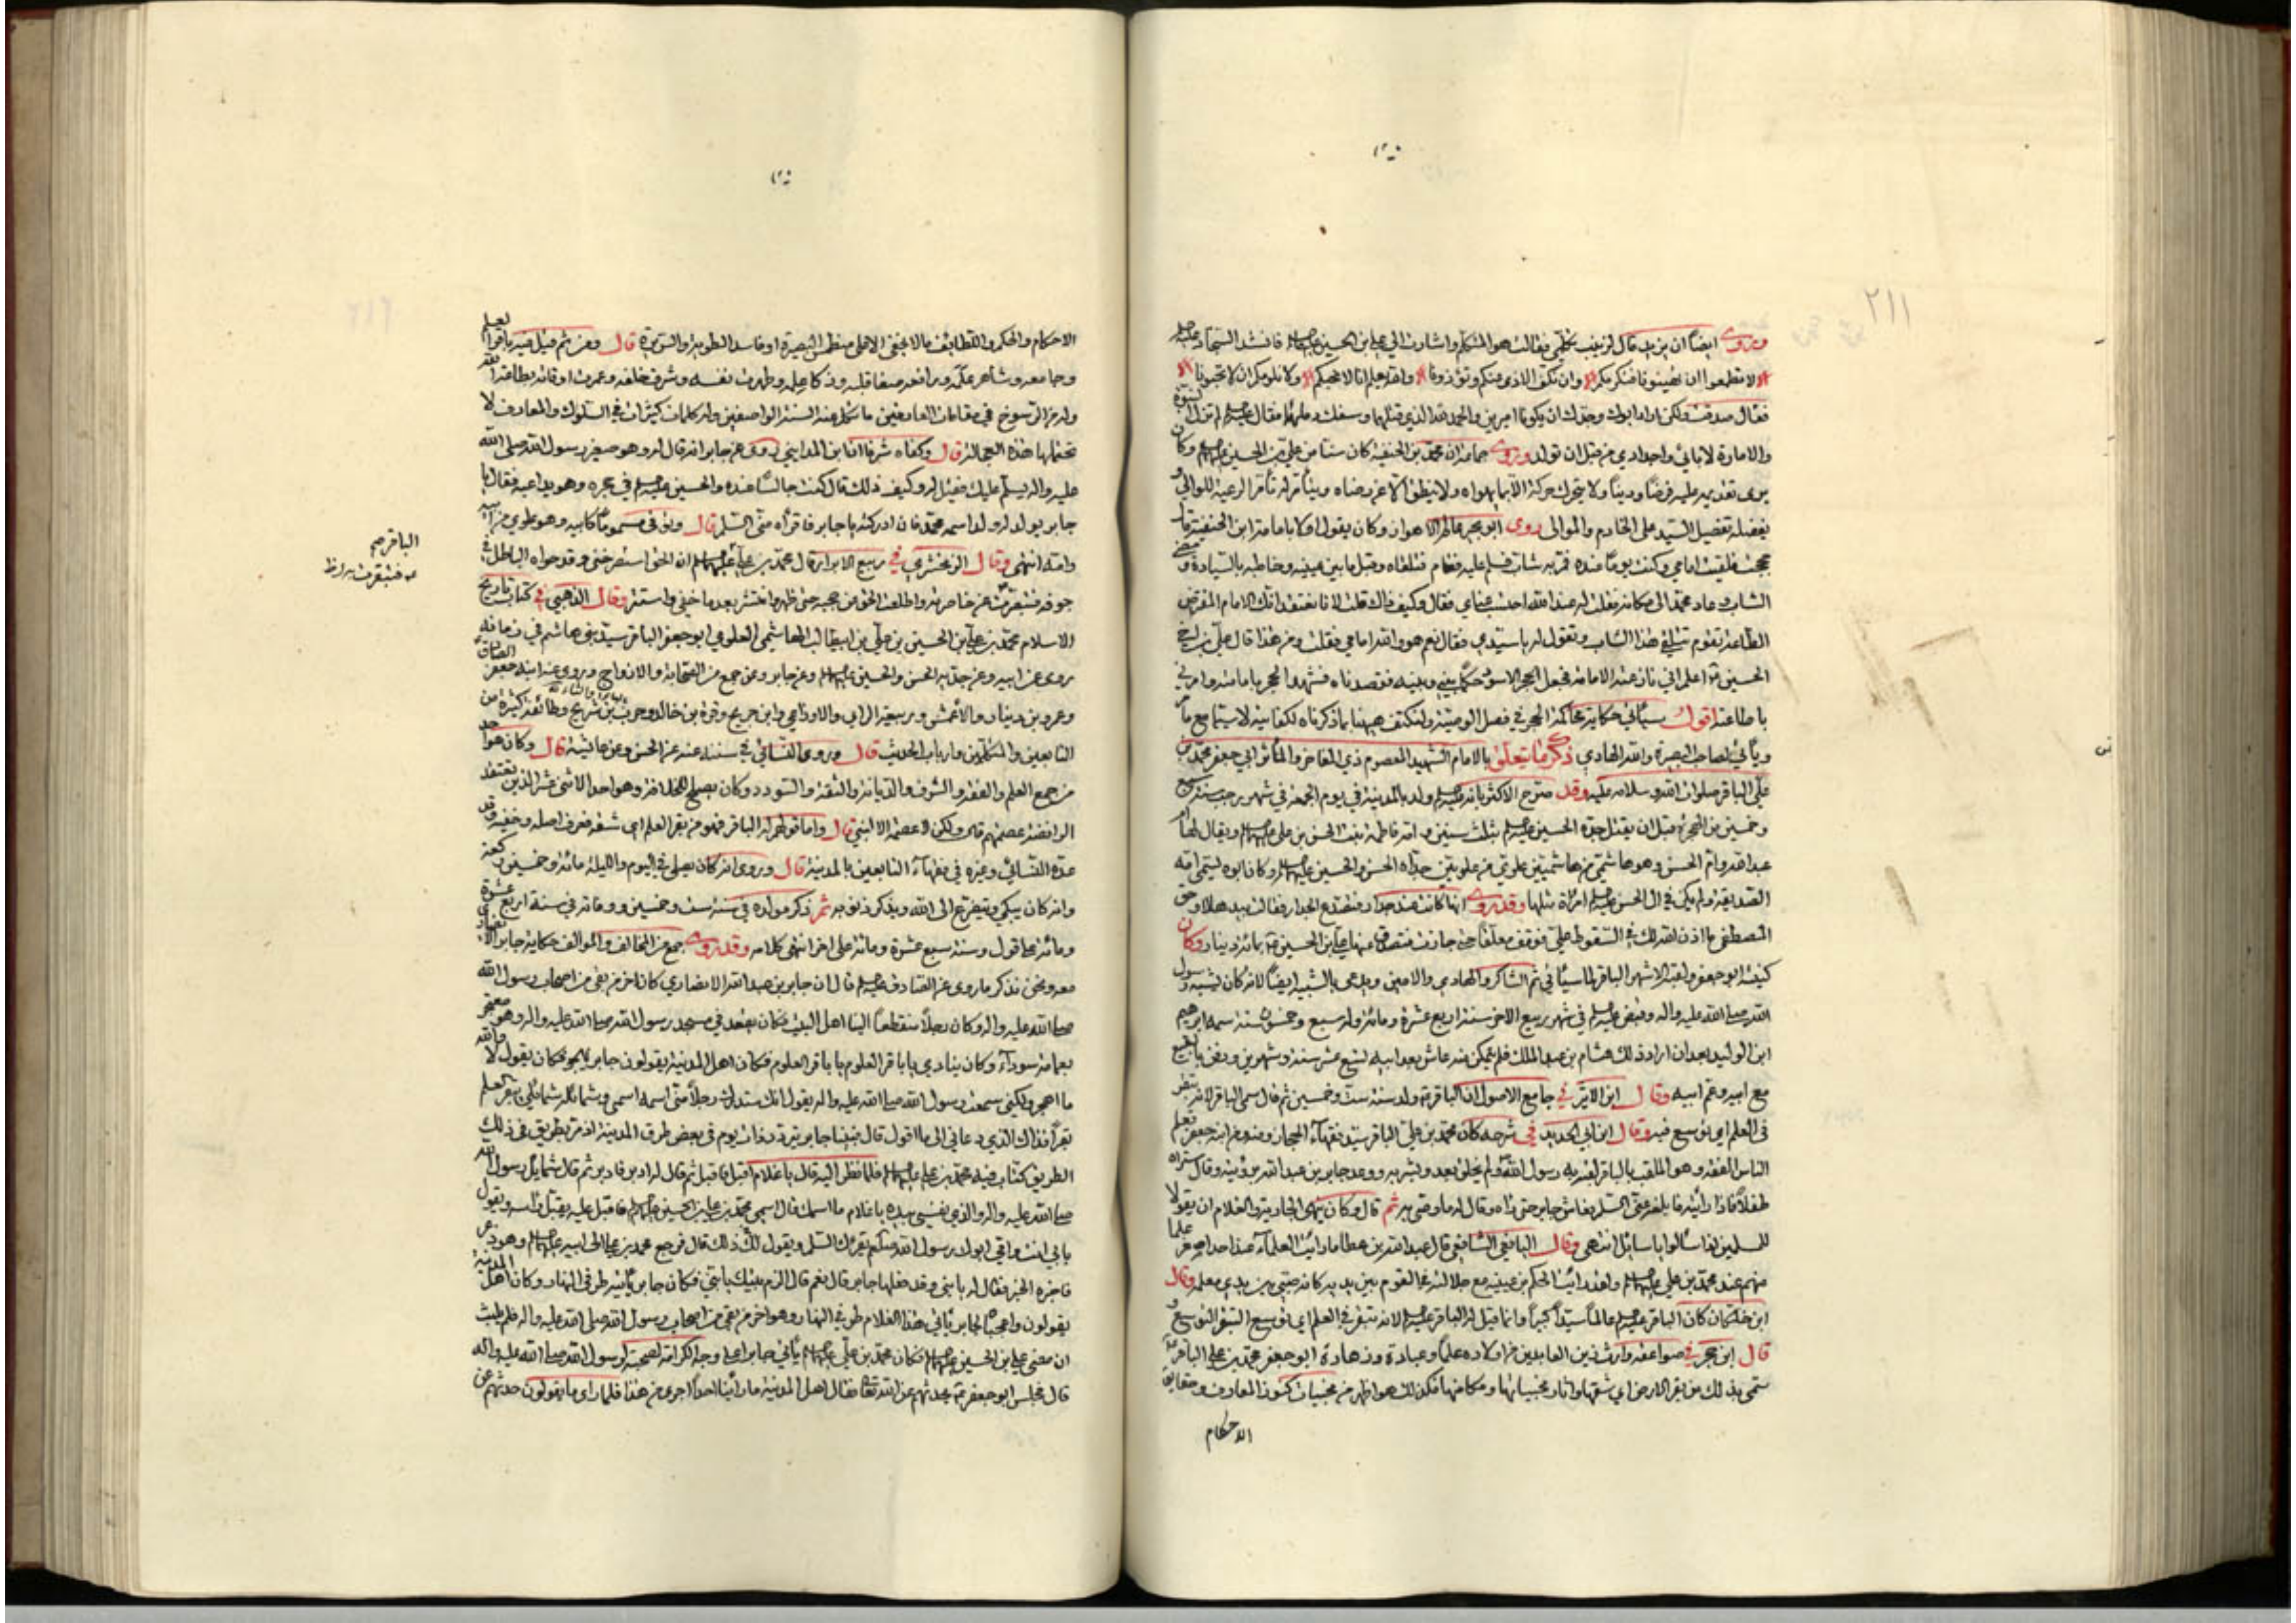 ٢١١
وروى ايضاً ان يزيد قال لزينب تكلمي فقالت هو المتكلم واشارت الى علي بن الحسين عليهما فانشد السجاد عليه
لا تطمعوا ان تهينونا فنكرمكم وان نكف الاذى منكم وتؤذونا والله يعلم انا لا نحبكم ولا نلومكم ان لا تحبونا
فقال صدقت ولكن اراد ابوك وجدك ان يكونا اميرين والحمد لله الذي قتلهما وسفك دمائهما فقال لم تزل النبوة
والامارة لابائي واجدادي من قبل ان تولد وروى جماعة ان محمد بن الحنفية كان سناً من علي بن الحسين وكان
يرى تقديمه عليه فرضاً وديناً ولا يتحرك حركة الا بما يهواه ولا ينطق الا عن رضاه ويتأمر له تأمر الرعية للوالي و
يفضله تفضيل السيد على الخادم والموالى روى ابو بجير عالم الاهواز وكان يقول اولا بامامة ابن الحنفية قال
حججت فلقيت امامي وكنت يوماً عنده فمر به شاب فسلم عليه فقام فتلقاه وقبل ما بين عينيه وخاطبه بالسيادة ومضى
الشاب وعاد محمد الى مكانه فقلت له عند الله احتسب عناي فقال وكيف ذاك قلت لانا نعتقد انك الامام المفترض
الطاعة تقوم تتلقى هذا الشاب وتقول له يا سيدي فقال نعم هو والله امامي فقلت ومن هذا قال علي بن اخي
الحسين اعلم اني نازعته الامامة فجعل الحجر الاسود حكماً بيني وبينه فقصدناه فشهد الحجر بامامته وامرني
باطاعته اقول سيأتي حكاية محاكمة الحجر في فصل الوصية ولنكتف ههنا بما ذكرناه لكفايته لاسيما مع ما
ويأتي لصاحب البصيرة والله الهادي ذكر ما يتعلق بالامام الشهيد المعصوم ذي المفاخر والمآثر ابي جعفر محمد بن
علي الباقر صلوات الله وسلامه عليه وقد صرح الاكثر بانه ولد بالمدينة في يوم الجمعة في شهر رجب سنة سبع
وخمسين من الهجرة قبل ان يقتل جده الحسين بثلث سنين وامه فاطمة بنت الحسن بن علي ويقال لها ام
عبد الله وام الحسن وهو هاشمي من هاشميين علوي من علويين جداه الحسن والحسين وكان ابوه يسمى امه
الصديقة ولم يكن في ال الحسن امراة مثلها وقد روى انها كانت عند جدار فتصدع الجدار فقالت بيدها لا وحق
المصطفى ما اذن الله لك في السقوط علي فوقف معلقاً حتى جازت فتصدق عنها علي بن الحسين بمائة دينار وكان
كنيته ابو جعفر ولقبه الاشهر الباقر لما سيأتي ثم الشاكر والهادي والامين ويدعى بالشبيه ايضاً لانه كان يشبه رسول
الله صلى الله عليه واله وقبض في شهر ربيع الاخر سنة اربع عشرة ومائة وله سبع وخمسون سنة سمه ابراهيم
ابن الوليد بعد ان اراد ذلك هشام بن عبد الملك فلم يمكن منه عاش بعد ابيه تسع عشر سنة وشهرين ودفن بالبقيع
مع ابيه وعم ابيه وقال ابن الاثير في جامع الاصول ان الباقر ولد سنة ست وخمسين ثم قال سمى الباقر لانه تبقر
في العلم اي توسع فيه وقال ابن ابي الحديد في شرحه كان محمد بن علي الباقر سيد فقهاء الحجاز ومنه ومن ابنه جعفر تعلم
الناس الفقه وهو الملقب بالباقر لقبه به رسول الله ولم يخلق بعد وبشر به ووعد جابر بن عبد الله برؤيته وقال ستراه
طفلاً فاذا رأيته فابلغه عني السلم فعاش جابر حتى راه وقال له ما وصى به ثم قال وكان ينهى الجارية والغلام ان يقولا
للمسلمين اذا سألوا يا سائل انتهى وقال اليافعي الشافعي قال عبد الله بن عطا ما رأيت العلماء عند احد اصغر علما
منهم عند محمد بن علي ولقد رأيت الحكم بن عيينه مع جلالته في القوم بين يديه كانه صبي بين يدي معلمه وقال
ابن خلكان كان الباقر عالماً سيداً كبيراً وانما قيل له الباقر لانه تبقر في العلم اي توسع التبقر التوسع و
قال ابن حجر في صواعقه وارث زين العابدين من اولاده علماً وعبادة وزهادة ابو جعفر محمد بن علي الباقر
سمى بذلك من بقر الارض اي شقها واثار مخبياتها ومكامنها فكذلك هو اظهر من مخبيات كنوز المعارف وحقايق
الاحكام
الاحكام والحكم واللطايف ما لا يخفى الا على منطمس البصيرة او فاسد الطوية والسريرة قال ومن ثم قيل فيه باقر العلم
وجامعه وشاهر علمه ورافعه صفا قلبه وزكا علمه وطهرت نفسه وشرف خلقه وعمرت اوقاته بطاعة الله
وله من الرسوخ في مقامات العارفين ما تكل عنه السنة الواصفين وله كلمات كثيرات في السلوك والمعارف لا
تحتملها هذه العجالة قال وكفاه شرفا ان ابن المدايني روى عن جابر انه قال له وهو صغير رسول الله صلى الله
عليه واله يسلم عليك فقيل له وكيف ذلك قال كنت جالساً عنده والحسين في حجره وهو يداعبه فقال يا
جابر يولد له ولد اسمه محمد فان ادركته يا جابر فاقرأه مني السلم قال وتوفى مسموماً كابيه وهو علوي من ابيه
وامه انتهى وقال الزمخشري في ربيع الابرار قال محمد بن علي ان الحق استصرخني وقد حواه الباطل في
جوفه فبقرت عن خاصرته واطلعت الحق من حجبه حتى ظهر وانتشر بعد ما خفي واستتر وقال الذهبي في كتاب تاريخ
الاسلام محمد بن علي بن الحسين بن علي بن ابيطالب الهاشمي العلوي ابو جعفر الباقر سيد بني هاشم في زمانه
روى عن ابيه وعن جديه الحسن والحسين وعن جابر وعن جمع من الصحابة والازواج وروى عنه ابنه جعفر الصادق
وعمرو بن دينار والاعمش وربيعة الراي والاوزاعي وابن جريج وقرة بن خالد وحرب بن شريح وطائفة كثيرة من
التابعين والمتكلمين وارباب الحديث قال وروى النسائي في سننه عنه عن الحسن وعن عائشة قال وكان هو احد
من جمع العلم والفقه والشرف والديانة والثقة والسودد وكان يصلح للخلافة وهو احد الاثنى عشر الذين يعتقد
الرافضة عصمتهم قال ولكن لا عصمة الا لنبي قال واما قولهم له الباقر فهو من بقر العلم اي شقه فعرف اصله وخفيه وقد
عده النسائي وغيره في فقهاء التابعين بالمدينة قال وروى انه كان يصلي في اليوم والليلة مائة وخمسين ركعة
وانه كان يبكي ويتضرع الى الله ويذكر ذنوبه ثم ذكر مولده في سنة ست وخمسين ووفاته في سنة اربع عشرة
ومائة على قول وسنة سبع عشرة ومائة على اخر انتهى كلامه وقد روى جمع من المخالف والموالف حكاية جابر الانصاري
معه ونحن نذكر ما روى عن الصادق قال ان جابر بن عبد الله الانصاري كان اخر من بقى من اصحاب رسول الله
صلى الله عليه واله وكان رجلاً منقطعاً الينا اهل البيت فكان يقعد في مسجد رسول الله صلى الله عليه واله وهو معتجر
بعمامة سوداء وكان ينادي يا باقر العلوم يا باقر العلوم فكان اهل المدينة يقولون جابر يهجر فكان يقول لا والله
ما اهجر ولكني سمعت رسول الله صلى الله عليه واله يقول انك ستدرك رجلاً مني اسمه اسمي وشمائله شمائلي يبقر العلم
بقراً فذاك الذي دعاني الى ما اقول قال فبينا جابر يتردد ذات يوم في بعض طرق المدينة اذ مر بطريق في ذلك
الطريق كتاب فيه محمد بن علي فلما نظر اليه قال يا غلام اقبل فاقبل ثم قال له ادبر فادبر ثم قال شمائل رسول الله
صلى الله عليه واله والذي نفسي بيده يا غلام ما اسمك قال اسمي محمد بن علي بن الحسين فاقبل عليه يقبل رأسه ويقول
بابي انت وامي ابوك رسول الله صلعم يقرئك السلم ويقول لك ذلك قال فرجع محمد بن علي الى ابيه وهو ذعر
فاخبره الخبر فقال له يا بني وقد فعلها جابر قال نعم قال الزم بيتك يا بني فكان جابر يأتيه طرفي النهار وكان اهل المدينة
يقولون واعجباً لجابر يأتي هذا الغلام طرفي النهار وهو اخر من بقى من اصحاب رسول الله صلى الله عليه واله فلم يلبث
ان مضى علي بن الحسين فكان محمد بن علي يأتي جابر على وجه الكرامة لصحبته لرسول الله صلى الله عليه واله
قال فجلس ابو جعفر يحدثهم عن الله تعالى فقال اهل المدينة ما رأينا احداً اجرى من هذا فلما راى ما يقولون حدثهم عن